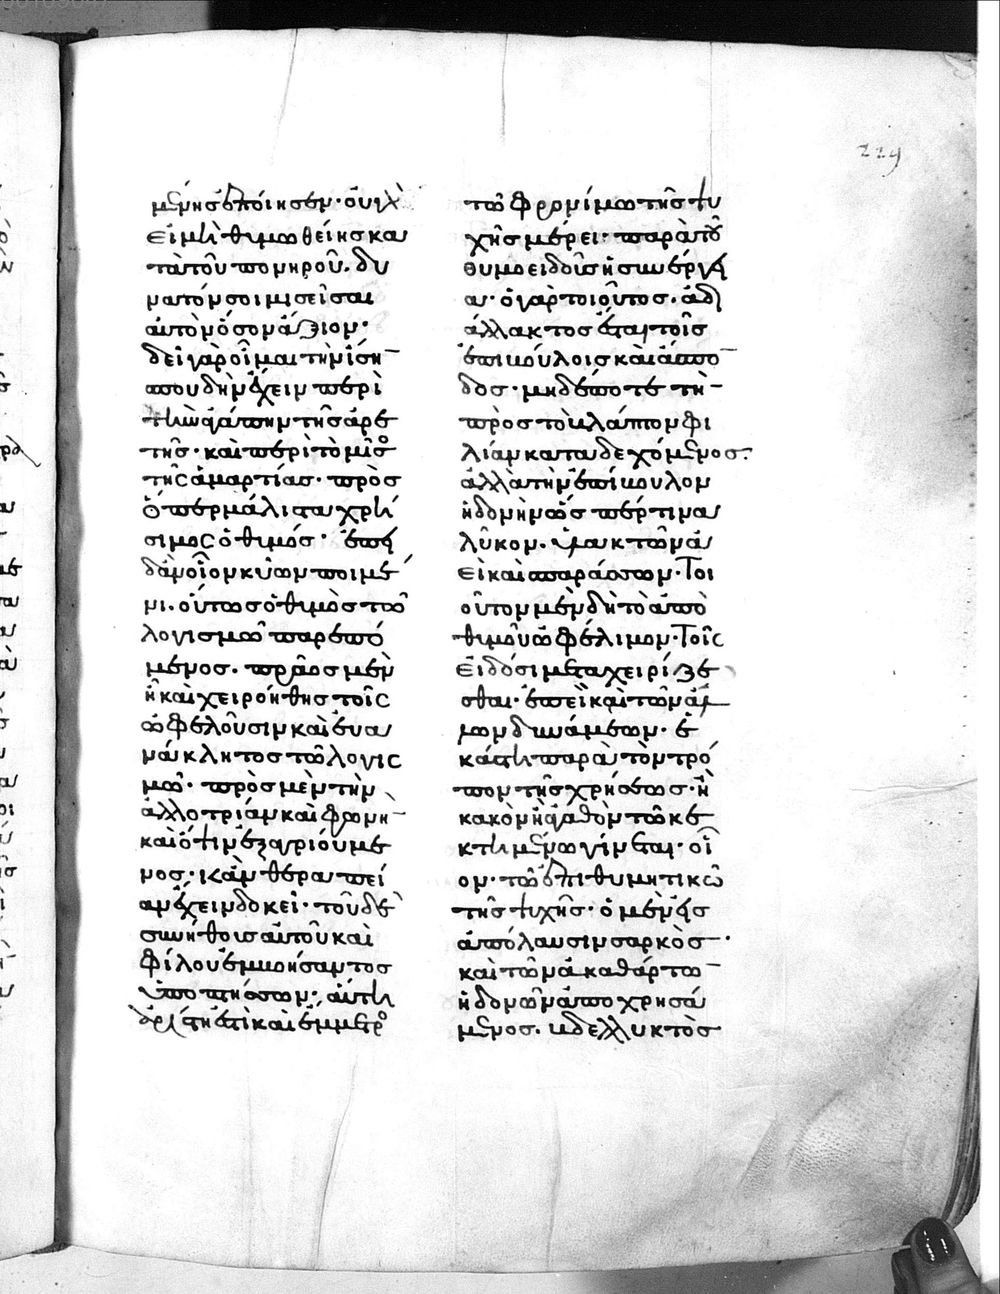 229
μένης ἐποίησεν· οὐκ ἂ
εἰ μὴ θυμωθείης κα
τὰ τοῦ πονηροῦ. δυ
νατόν σοι μισεῖσαι
αὐτὸν ὅσον ἄξιον·
δεῖ γὰρ οἶμαι τὴν ἴσην
σπουδὴν ἔχειν περὶ
τὴν ἀγάπην τῆς ἀρε
τῆς· καὶ περὶ τὸ μῖσος
τῆς ἁμαρτίας· πρὸς
ὅπερ μάλιστα χρή
σιμος ὁ θυμός· ἐπει
δὰν οἷον κύων ποιμέ
νι. οὕτως ὁ θυμὸς τῶ
λογισμῶ παρεπό
μενος. πρᾶος μὲν
ἦ καὶ χειροήθης τοῖς
ὠφελοῦσιν καὶ εὐα
νάκλητος τῶ λογισ
μῶ· πρὸς μὲν τὴν
ἀλλοτρίαν καὶ φωνὴν
καὶ ὄψιν ἐξαγριούμε
νος· κἂν θεραπεί
αν ἔχειν δοκεῖ· τοῦ δὲ
συνήθους αὐτοῦ καὶ
φίλου ἐμβοήσαντος
ὑποπτήσσων· αὕτη
ἀρίστη ἐστὶ καὶ ἔμμετρος
τῶ φρονίμω τῆς ψυ
χῆς μέρει· παρὰ τοῦ
θυμοειδοῦς ἡ συνεργεί
α· ὁ γὰρ τοιοῦτος. ἀδι
άλλακτος ἔσται τοῖς
ἐπιβούλοις καὶ ἄσπον
δος· μηδέποτε τὴν
πρὸς τὸ βλάπτον φι
λίαν καταδεχόμενος.
ἀλλὰ τὴν ἐπίβουλον
ἡδονὴν ὥσπερ τινα
λύκον. ὑλακτῶν ἀ
εὶ καὶ σπαράσσων· Τοι
οῦτον μὲν δὴ τὸ ἀπὸ
θυμοῦ ὠφέλιμον· Τοῖς
εἰδόσι μεταχειρίζε
σθαι· ἐπεὶ καὶ τῶν ἄλ
λων δυνάμεων· ἑ
κάστη παρὰ τὸν τρό
πον τῆς χρήσεως· ἢ
κακὸν ἢ ἀγαθὸν τῶ κε
κτημένω γίνεται· οἷ
ον· τῶ ἐπιθυμητικῶ
τῆς ψυχῆς· ὁ μὲν εἰς
ἀπόλαυσιν σαρκὸς·
καὶ τῶν ἀκαθάρτων
ἡδονῶν ἀποχρησά
μενος. βδελλυκτὸς